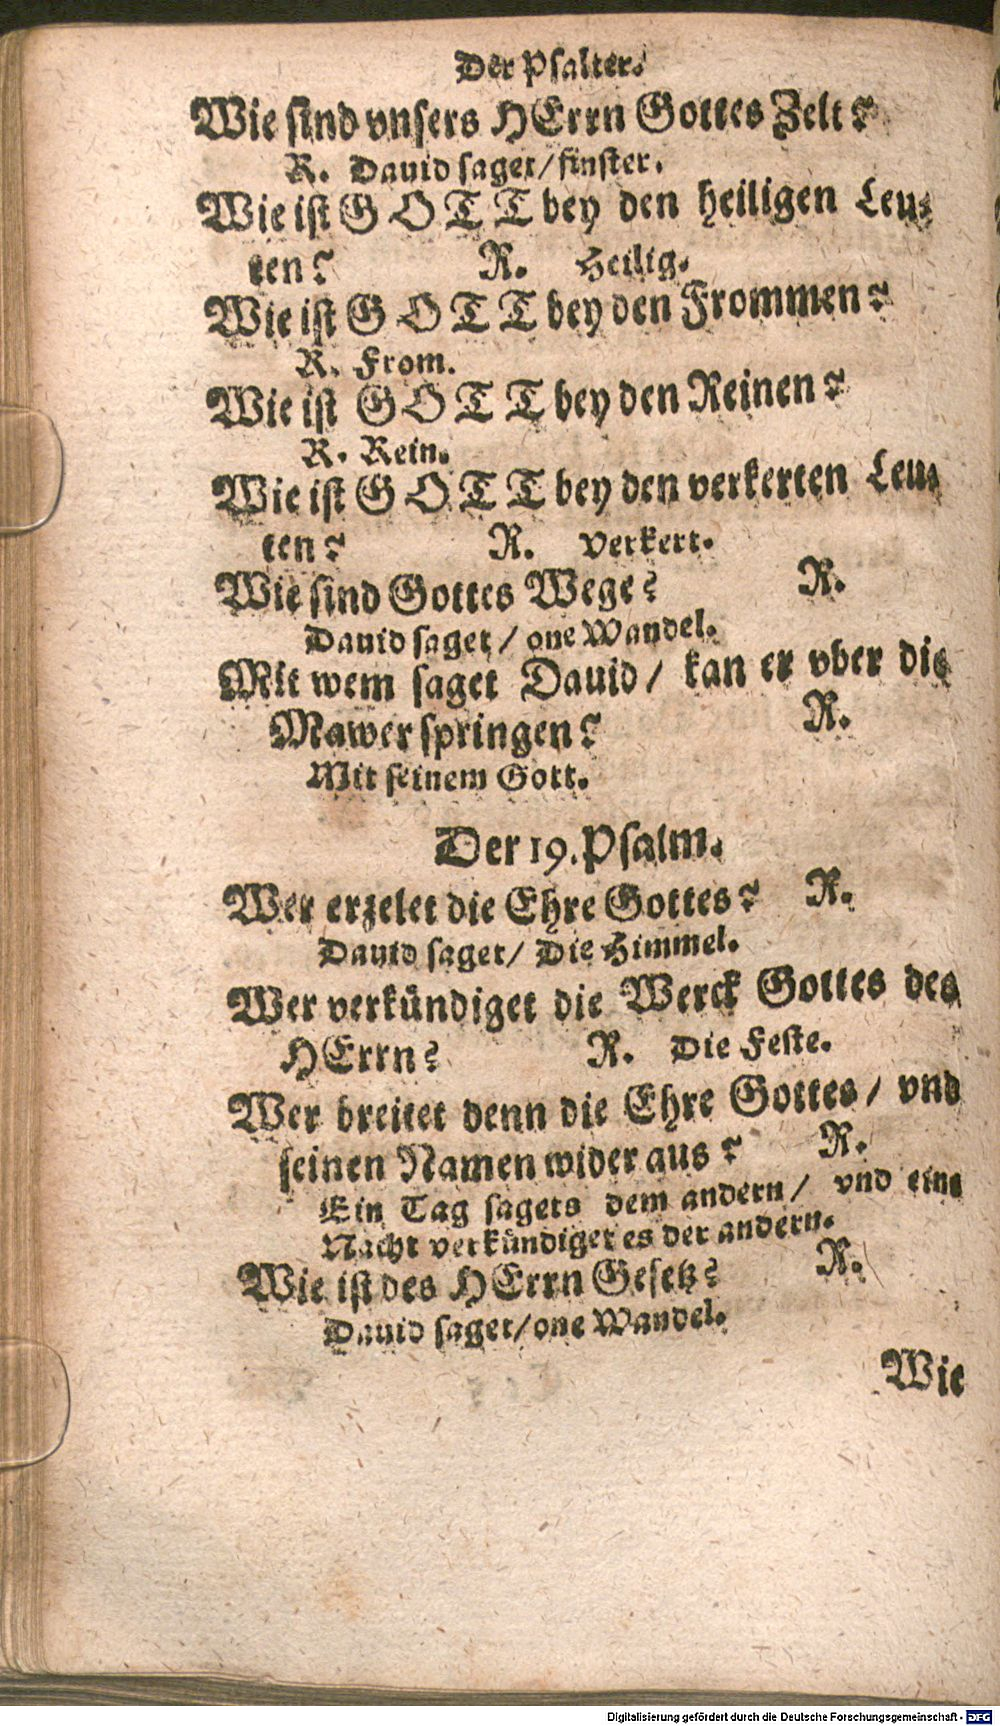 Der Psalter.
Wie sind vnsers HErrn Gottes Zelt?
R. Dauid saget/ finster.
Wie ist GOTT bey den heiligen Leu-
ten? R. Heilig.
Wie ist GOTT bey den Frommen?
R. From.
Wie ist GOTT bey den Reinen?
R. Rein.
Wie ist GOTT bey den verkerten Leu-
ten? R. Verkert.
Wie sind Gottes Wege? R.
Dauid saget/ one Wandel.
Mit wem saget Dauid/ kan er vber die
Mawer springen? R.
Mit seinem Gott.
Der 19. Psalm.
Wer erzelet die Ehre Gottes? R.
Dauid saget/ Die Himmel.
Wer verkündiget die Werck Gottes des
HErrn? R. Die Feste.
Wer breitet denn die Ehre Gottes/ vnd
seinen Namen wider aus? R.
Ein Tag sagets dem andern/ vnd eine
Nacht verkündiget es der andern.
Wie ist des HErrn Gesetz? R.
Dauid saget/ one Wandel.
Wie
Digitalisierung gefördert durch die Deutsche Forschungsgemeinschaft - DFG